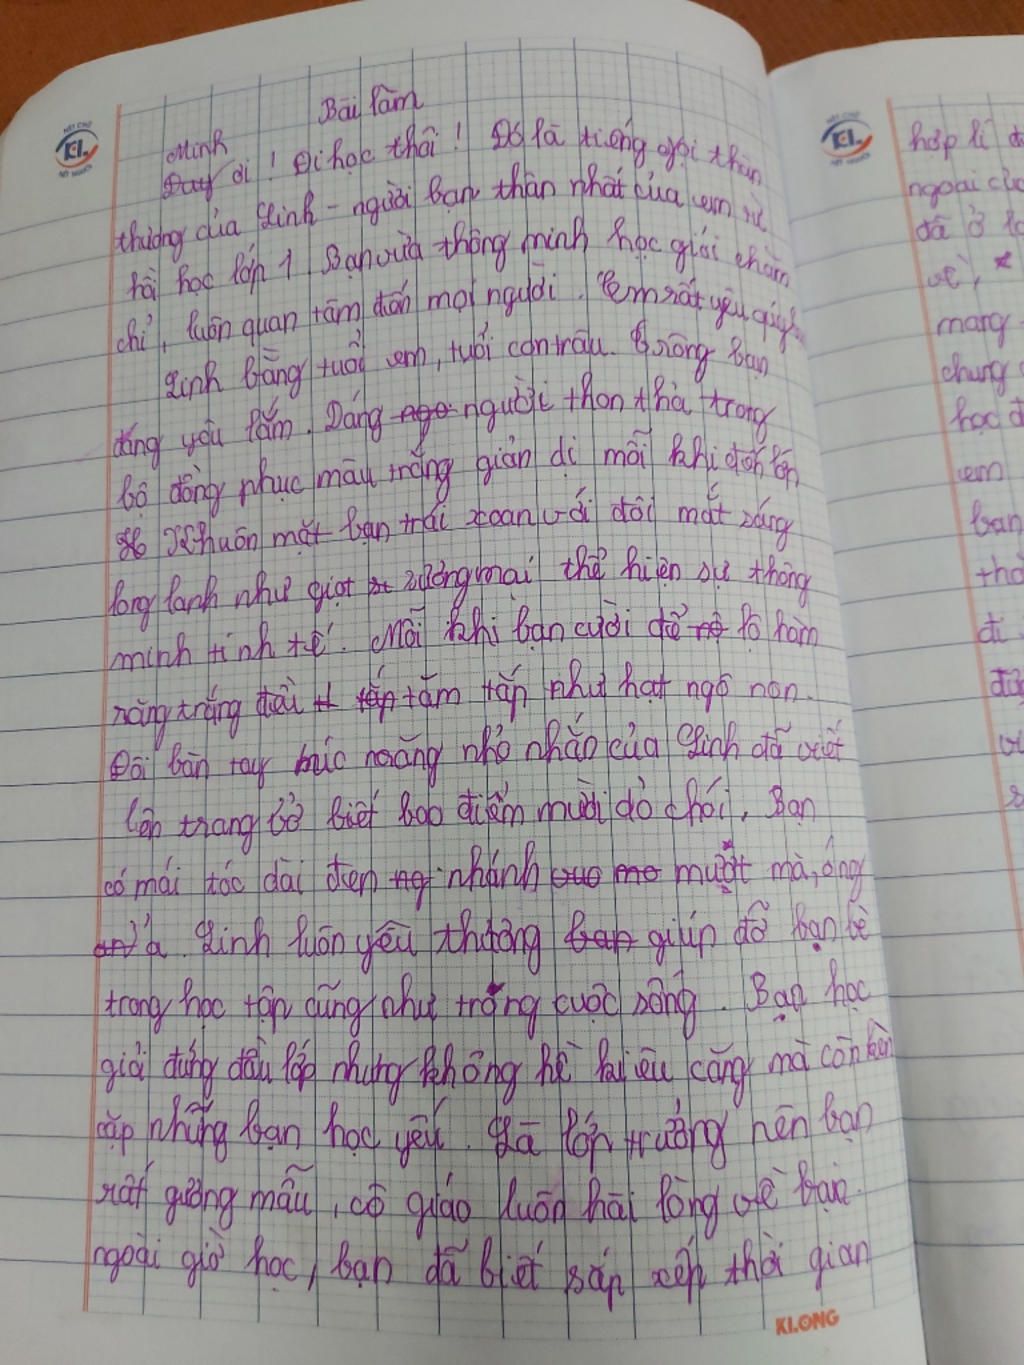 Bài làm
Minh
Duy ơi! Đi học thôi! Đó là tiếng gọi thân
thương của Linh - người bạn thân nhất của em từ
hồi học lớp 1 Bạn vừa thông minh học giỏi chăm
chỉ, luôn quan tâm đến mọi người. Em rất yêu quý
Linh bằng tuổi em, tuổi con trâu. Trông bạn
đáng yêu lắm. Dáng ngo người thon thả trong
bộ đồng phục màu trắng giản dị mỗi khi đến lớp
Khuôn mặt bạn trái xoan với đôi mắt sáng
long lanh như giọt sương mai thể hiện sự thông
minh tinh tế. Mỗi khi bạn cười để lộ hàm
răng trắng đều tăm tắp như hạt ngô non.
Đôi bàn tay búp măng nhỏ nhắn của Linh đã viết
lên trang vở biết bao điểm mười đỏ chói. Bạn
có mái tóc dài đen ng nhánh mượt mà, óng
ả. Linh luôn yêu thương bạn giúp đỡ bạn bè
trong học tập cũng như trong cuộc sống. Bạn học
giỏi đứng đầu lớp nhưng không hề kiêu căng mà còn kèn
cặp những bạn học yếu. Là lớp trưởng nên bạn
rất gương mẫu, cô giáo luôn hài lòng về bạn.
ngoài giờ học, bạn đã biết sắp xếp thời gian
KLONG
KL
NÉT CHỮ
NẾT NGƯỜI
KL
hợp lí
ngoài
đã ở
về,
mang
chung
học
em
bạn
đi